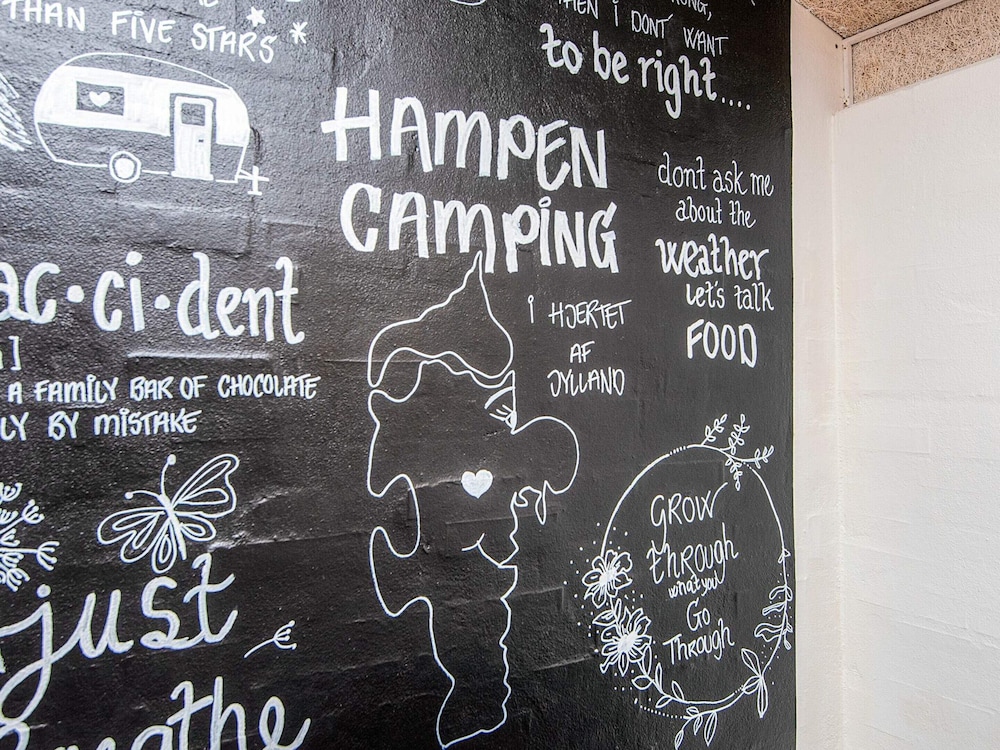 THAN FIVE STARS
THEN i DONT WANT
to be right....
HAMPEN
CAMPiNG
i HJERTET
AF
JYLLAND
dont ask me
about the
weather
Let's talk
FOOD
ac·ci·dent
A FAMiLY BAR OF CHOCOLATE
LY BY MiSTAKE
GROW
through
what you
Go
Through
just
breathe